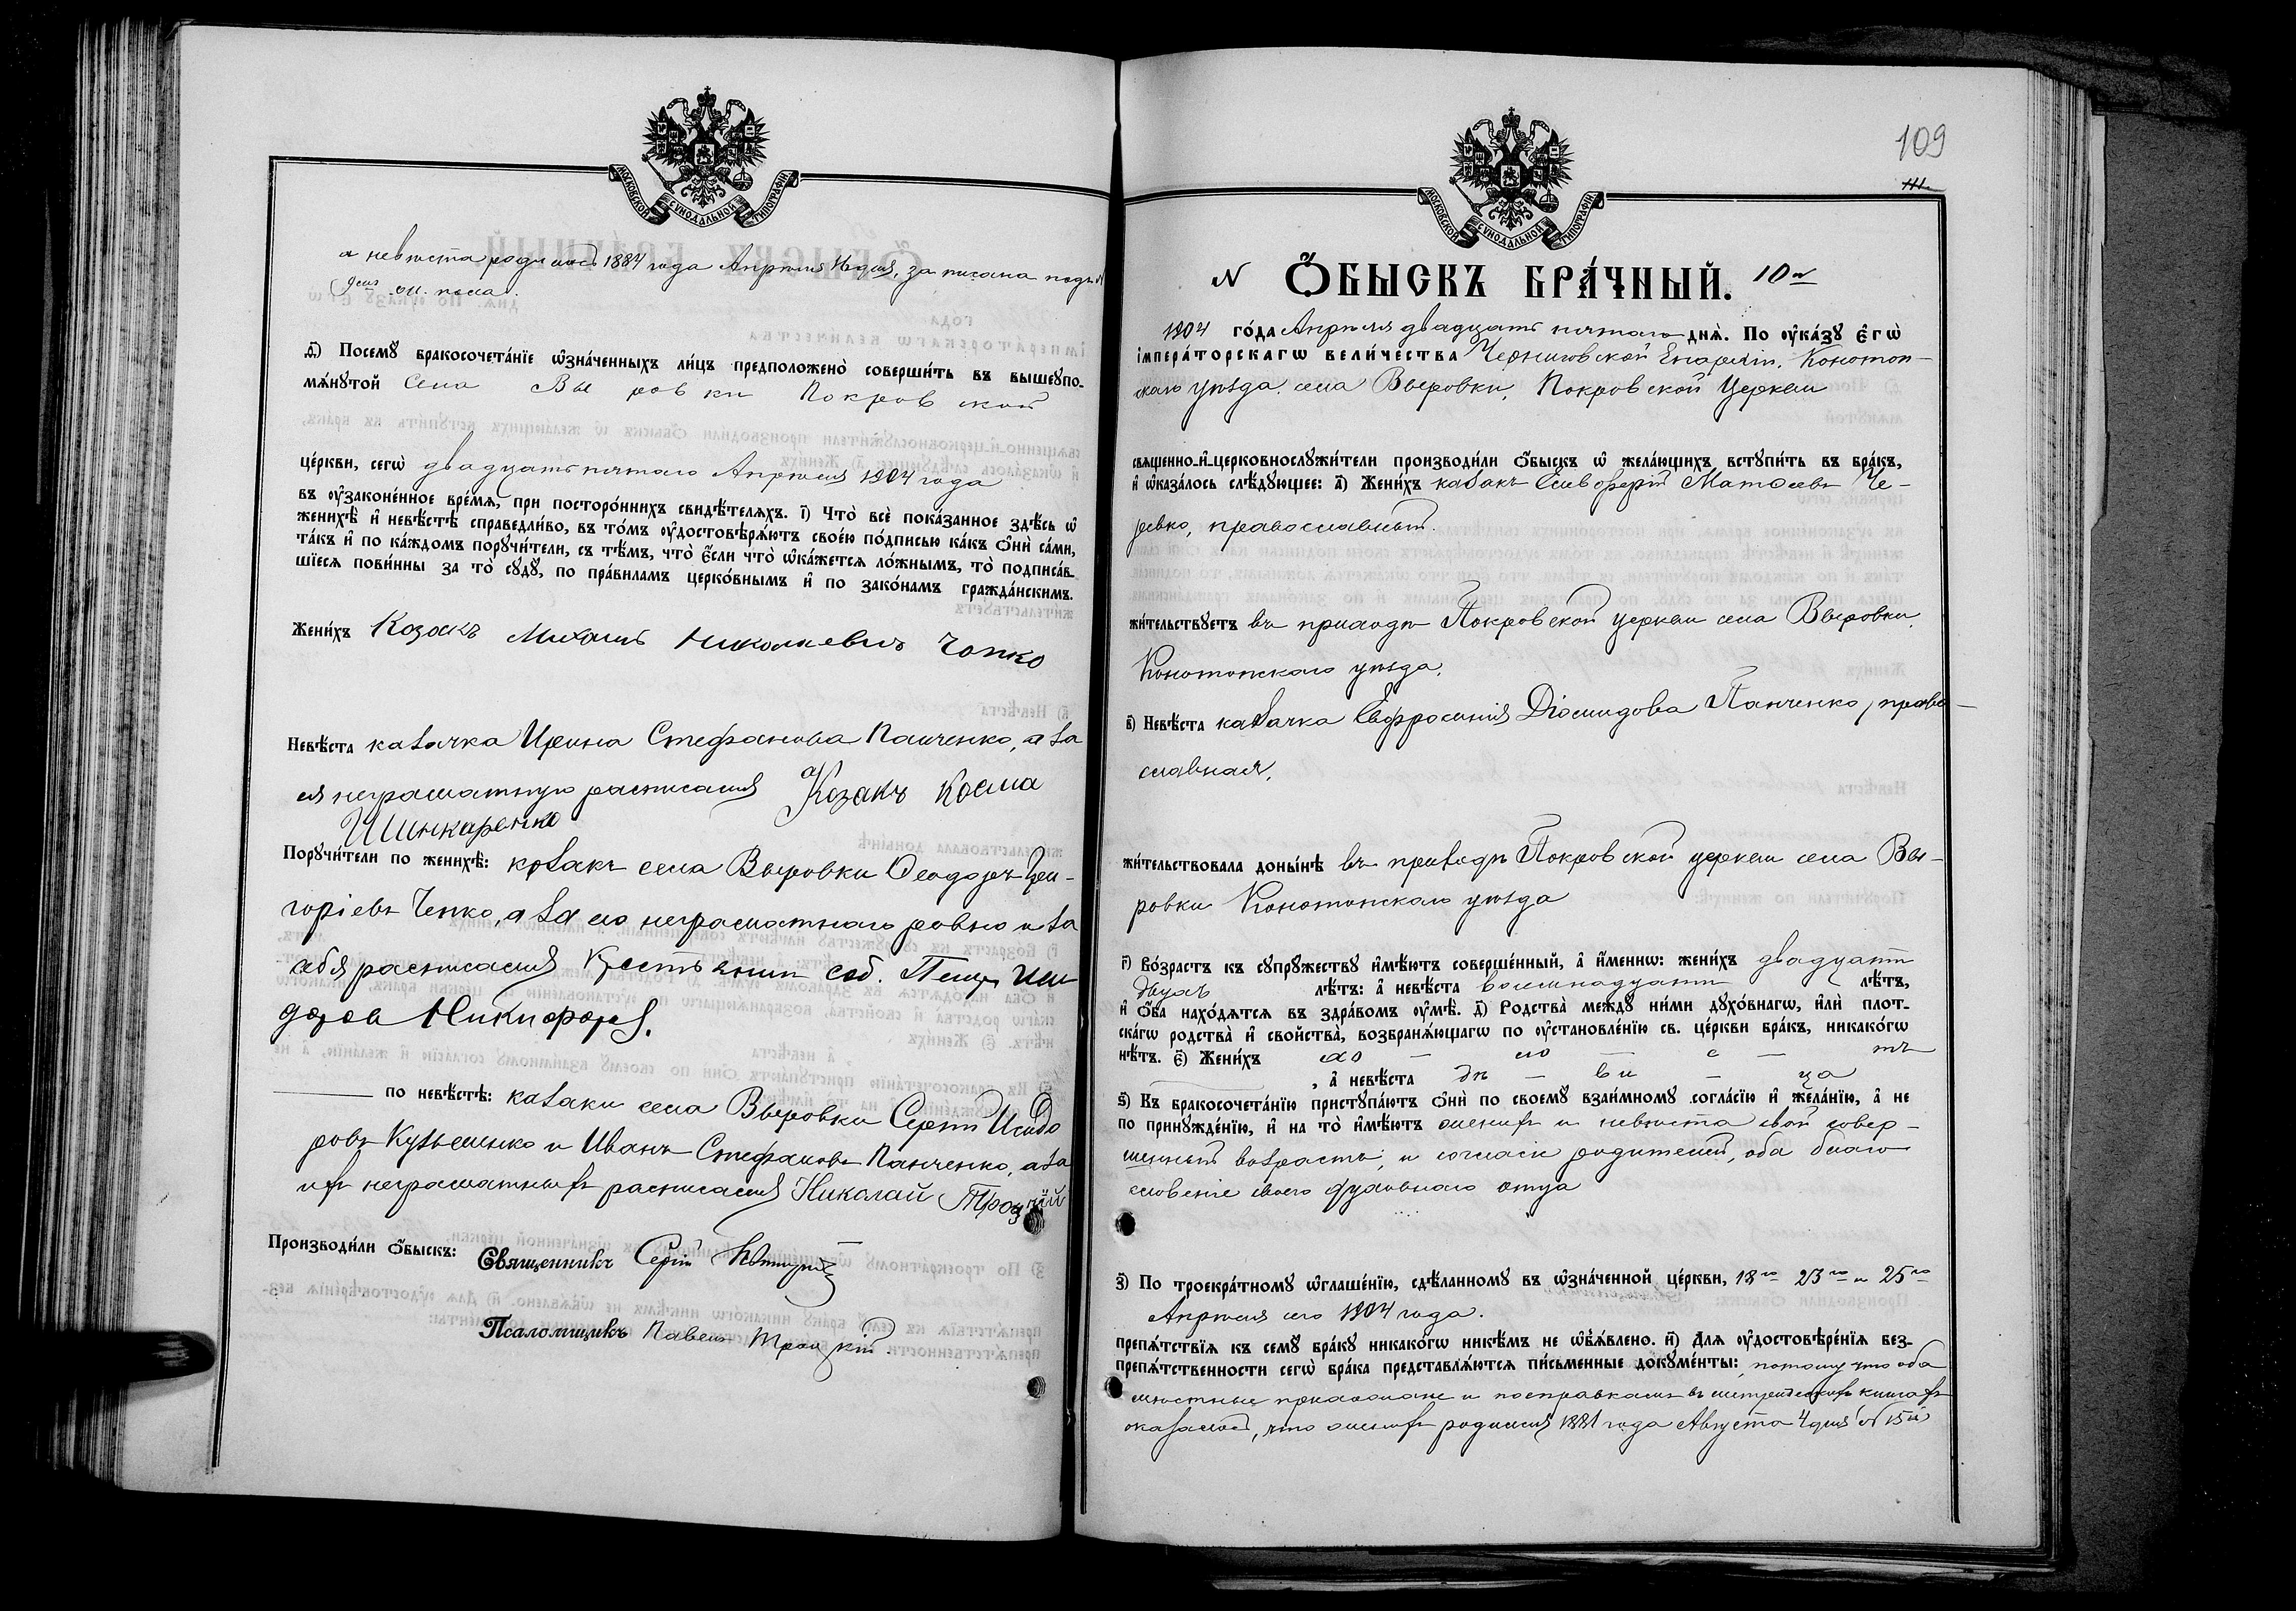 МОСКОВСКОЙ СѴНОДАЛЬНОЙ ТИПОГРАФІИ
а невѣста родилась 1884 года Апрѣля дня, записана подъ №
ж. пола.
Ѳ҃) Посемꙋ бракосочета́нїе ѡ҆зна́ченныхъ ли́цъ предположено̀ соверши́ть въ вышеꙋпо-
мѧ́нꙋтой Села Выровки Покровской
це́ркви, сегѡ̀ двадцать пятаго Апрѣля 1904 года
въ ᲂу҆законе́нное вре́мѧ, при посторо́ннихъ свидѣ́телѧхъ. і҃) Что̀ всѐ пока́занное здѣ́сь ѡ҆
женихѣ̀ и҆ невѣ́стѣ справедли́во, въ то́мъ ᲂу҆достовѣрѧ́ютъ свое́ю по́дписью ка́къ ѻ҆нѝ са́ми,
та́къ и҆ по ка́ждомъ порꙋчи́тели, съ тѣ́мъ, что̀ є҆́сли что̀ ѡ҆ка́жетсѧ ло́жнымъ, то̀ подписа́в-
шїесѧ пови́нны за то̀ сꙋдꙋ̀, по пра́виламъ церко́внымъ и҆ по зако́намъ гражда́нскимъ.
Жени́хъ Козакъ Михаилъ Николаевичъ Чопко
Невѣ́ста казачка Ирина Стефанова Панченко, а за
ея неграмотную расписался Козакъ Косма
Шинкаренко
Порꙋчи́тели по женихѣ̀: козакъ села Выровки Ѳеодоръ Гри-
горіевъ Чепко, а за его неграмотнаго равно и за
себя расписался Крестьянин соб. Петръ Иси
доров Никифоров.
по невѣ́стѣ: казаки села Выровки Сергій Исидо
ровъ Кузьменко и Иванъ Стефановъ Панченко, а за
ихъ неграмотныхъ расписался Николай Троцкій
Производи́ли ѻ҆́быскъ: Священникъ Сергій
Псаломщикъ Павелъ Троицкій.
109
111
МОСКОВСКОЙ СѴНОДАЛЬНОЙ ТИПОГРАФІИ
№ Ѻ҆́БЫСКЪ БРА́ЧНЫЙ. 10й
1904 го́да Апрѣля двадцать пятаго днѧ̀. По ᲂу҆ка́зꙋ є҆гѡ̀
і҆мпера́торскагѡ вели́чества Черниговской Епархіи, Конотоп-
скаго уѣзда, села Выровки, Покровской Церкви
свѧщенно-и҆-церковнослꙋжи́тели производи́ли ѻ҆́быскъ ѡ҆ жела́ющихъ встꙋпи́ть въ бра́къ,
и҆ ѡ҆каза́лось слѣ́дꙋющее: а҃) Жени́хъ козакъ Елевферій Матѳеевъ Че-
ревко, православный.
жи́тельствꙋетъ въ приходѣ Покровской церкви села Выровки,
Конотопскаго уѣзда.
в҃) Невѣ́ста казачка Евфросинія Діомидова Панченко, право-
славная.
жи́тельствовала доны́нѣ въ приходѣ Покровской церкви села Вы-
ровки Конотопскаго уѣзда
г҃) Во́зрастъ къ сꙋпрꙋ́жествꙋ и҆мѣ́ютъ соверше́нный, а҆ и҆́меннѡ: жени́хъ двадцати
двухъ лѣ́тъ: а҆ невѣ́ста восемнадцати лѣ́тъ,
и҆ ѻ҆́ба нахо́дѧтсѧ въ здра́вомъ ᲂу҆мѣ̀. д҃) Родства̀ междꙋ̀ ни́ми дꙋхо́внагѡ, и҆лѝ плот-
ска́гѡ родства̀ и҆ сво́йства̀, возбранѧ́ющагѡ по ᲂу҆становле́нїю св. це́ркви бра́къ, никако́гѡ
нѣ́тъ. є҃) Жени́хъ хо — ло — с — тъ
, а҆ невѣ́ста дѣ — ви — ца
ѕ҃) Къ бракосочета́нїю пристꙋпа́ютъ ѻ҆нѝ по своемꙋ̀ взаи́мномꙋ согла́сїю и҆ жела́нїю, а҆ не
по принꙋжде́нїю, и҆ на то̀ и҆мѣ́ютъ женихъ и невѣста свой совер-
шенный возрастъ, и согласіе родителей, оба благо
словеніе своего духовнаго отца
з҃) По троекра́тномꙋ ѡ҆глаше́нїю, сдѣ́ланномꙋ въ ѡ҆зна́ченной це́ркви, 18го 23го и 25го
Апрѣля сего 1904 года.
препѧ́тствїѧ къ семꙋ̀ бра́кꙋ никако́гѡ никѣ́мъ не ѡ҆б̾ѧ́влено. и҃) Для ᲂу҆достовѣре́нїѧ без-
препѧ́тственности сегѡ̀ бра́ка представлѧ́ютсѧ пи́сьменные докꙋме́нты: потому что оба
мѣстные прихожане и по справкамъ въ метрическихъ книгахъ
оказалось, что женихъ родился 1881 года Августа 4 дня № 15й